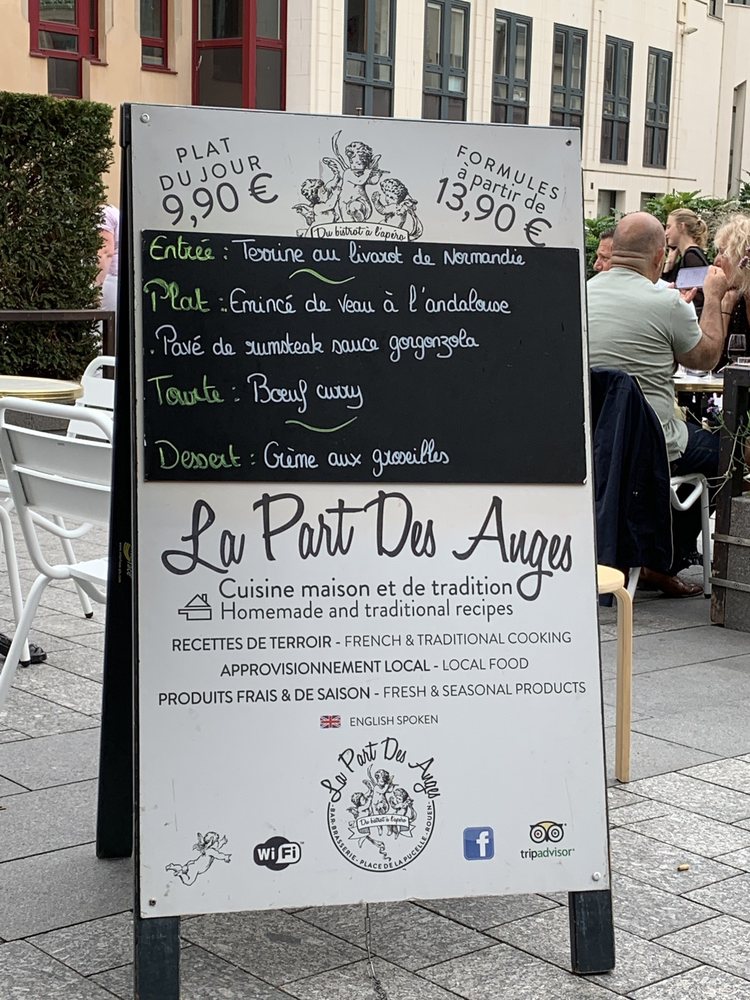 PLAT
DU JOUR
9,90 €
FORMULES
à partir de
13,90 €
Du bistrot à l'apéro
Entrée : Terrine au livarot de Normandie
Plat : Emincé de veau à l'andalouse
. Pavé de rumsteak sauce gorgonzola
Tourte : Bœuf curry
Dessert : Crème aux groseilles
La Part Des Anges
Cuisine maison et de tradition
Homemade and traditional recipes
RECETTES DE TERROIR - FRENCH & TRADITIONAL COOKING
APPROVISIONNEMENT LOCAL - LOCAL FOOD
PRODUITS FRAIS & DE SAISON - FRESH & SEASONAL PRODUCTS
ENGLISH SPOKEN
La Part Des Anges
Du bistrot à l'apéro
BAR-BRASSERIE - PLACE DE LA PUCELLE - ROUEN
WiFi
f
tripadvisor